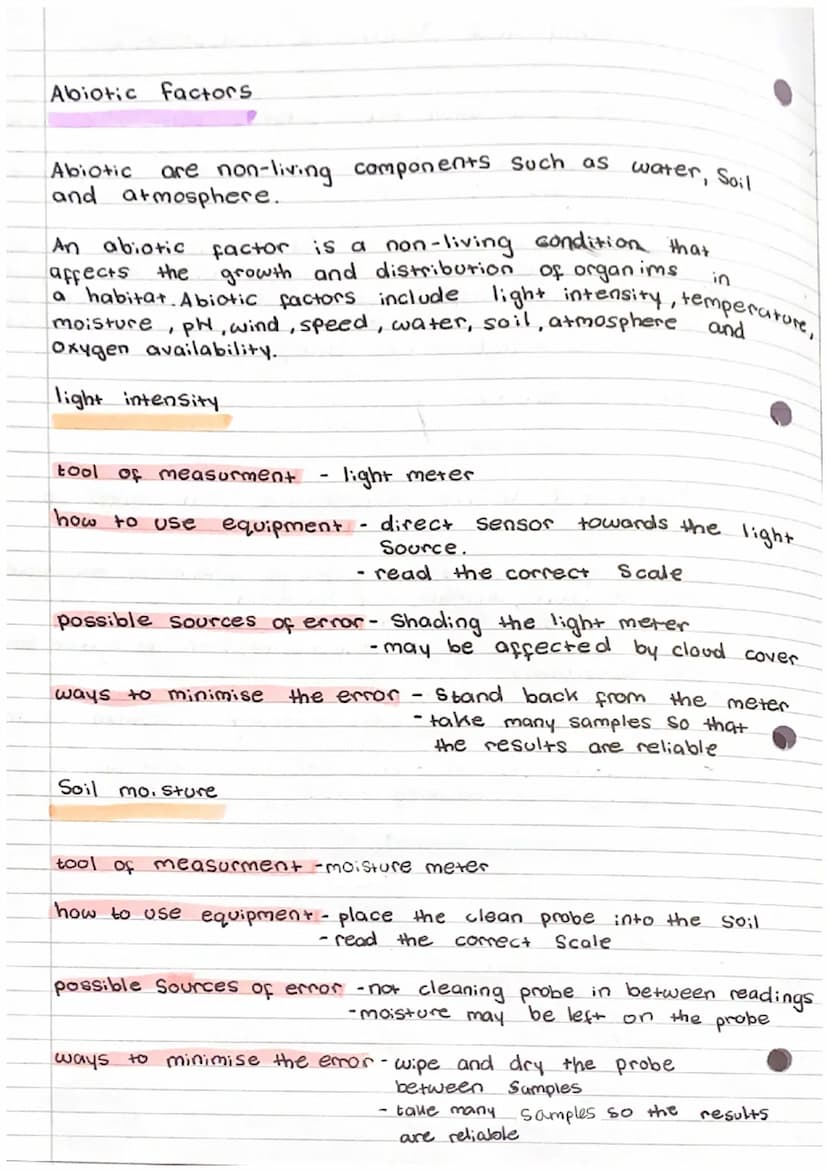 Abiotic factors
Abiotic are non-living components such as water, Soil
and atmosphere.
An abiotic factor is a non-living condition that
affects the growth and distribution of organims in
a habitat. Abiotic factors include light intensity, temperature,
moisture, pH, wind, speed, water, soil, atmosphere and
oxygen availability.
light intensity
tool of measurment - light meter
how to use equipment - direct sensor towards the light
Source.
- read the correct Scale
possible sources of error - Shading the light meter
- may be affected by cloud cover
ways to minimise the error - Stand back from the meter
- take many samples so that
the results are reliable
Soil moisture
tool of measurment - moisture meter
how to use equipment - place the clean probe into the soil
- read the correct Scale
possible Sources of error - not cleaning probe in between readings
- moisture may be left on the probe
ways to minimise the error - wipe and dry the probe
between Samples
- take many samples so the results
are reliable